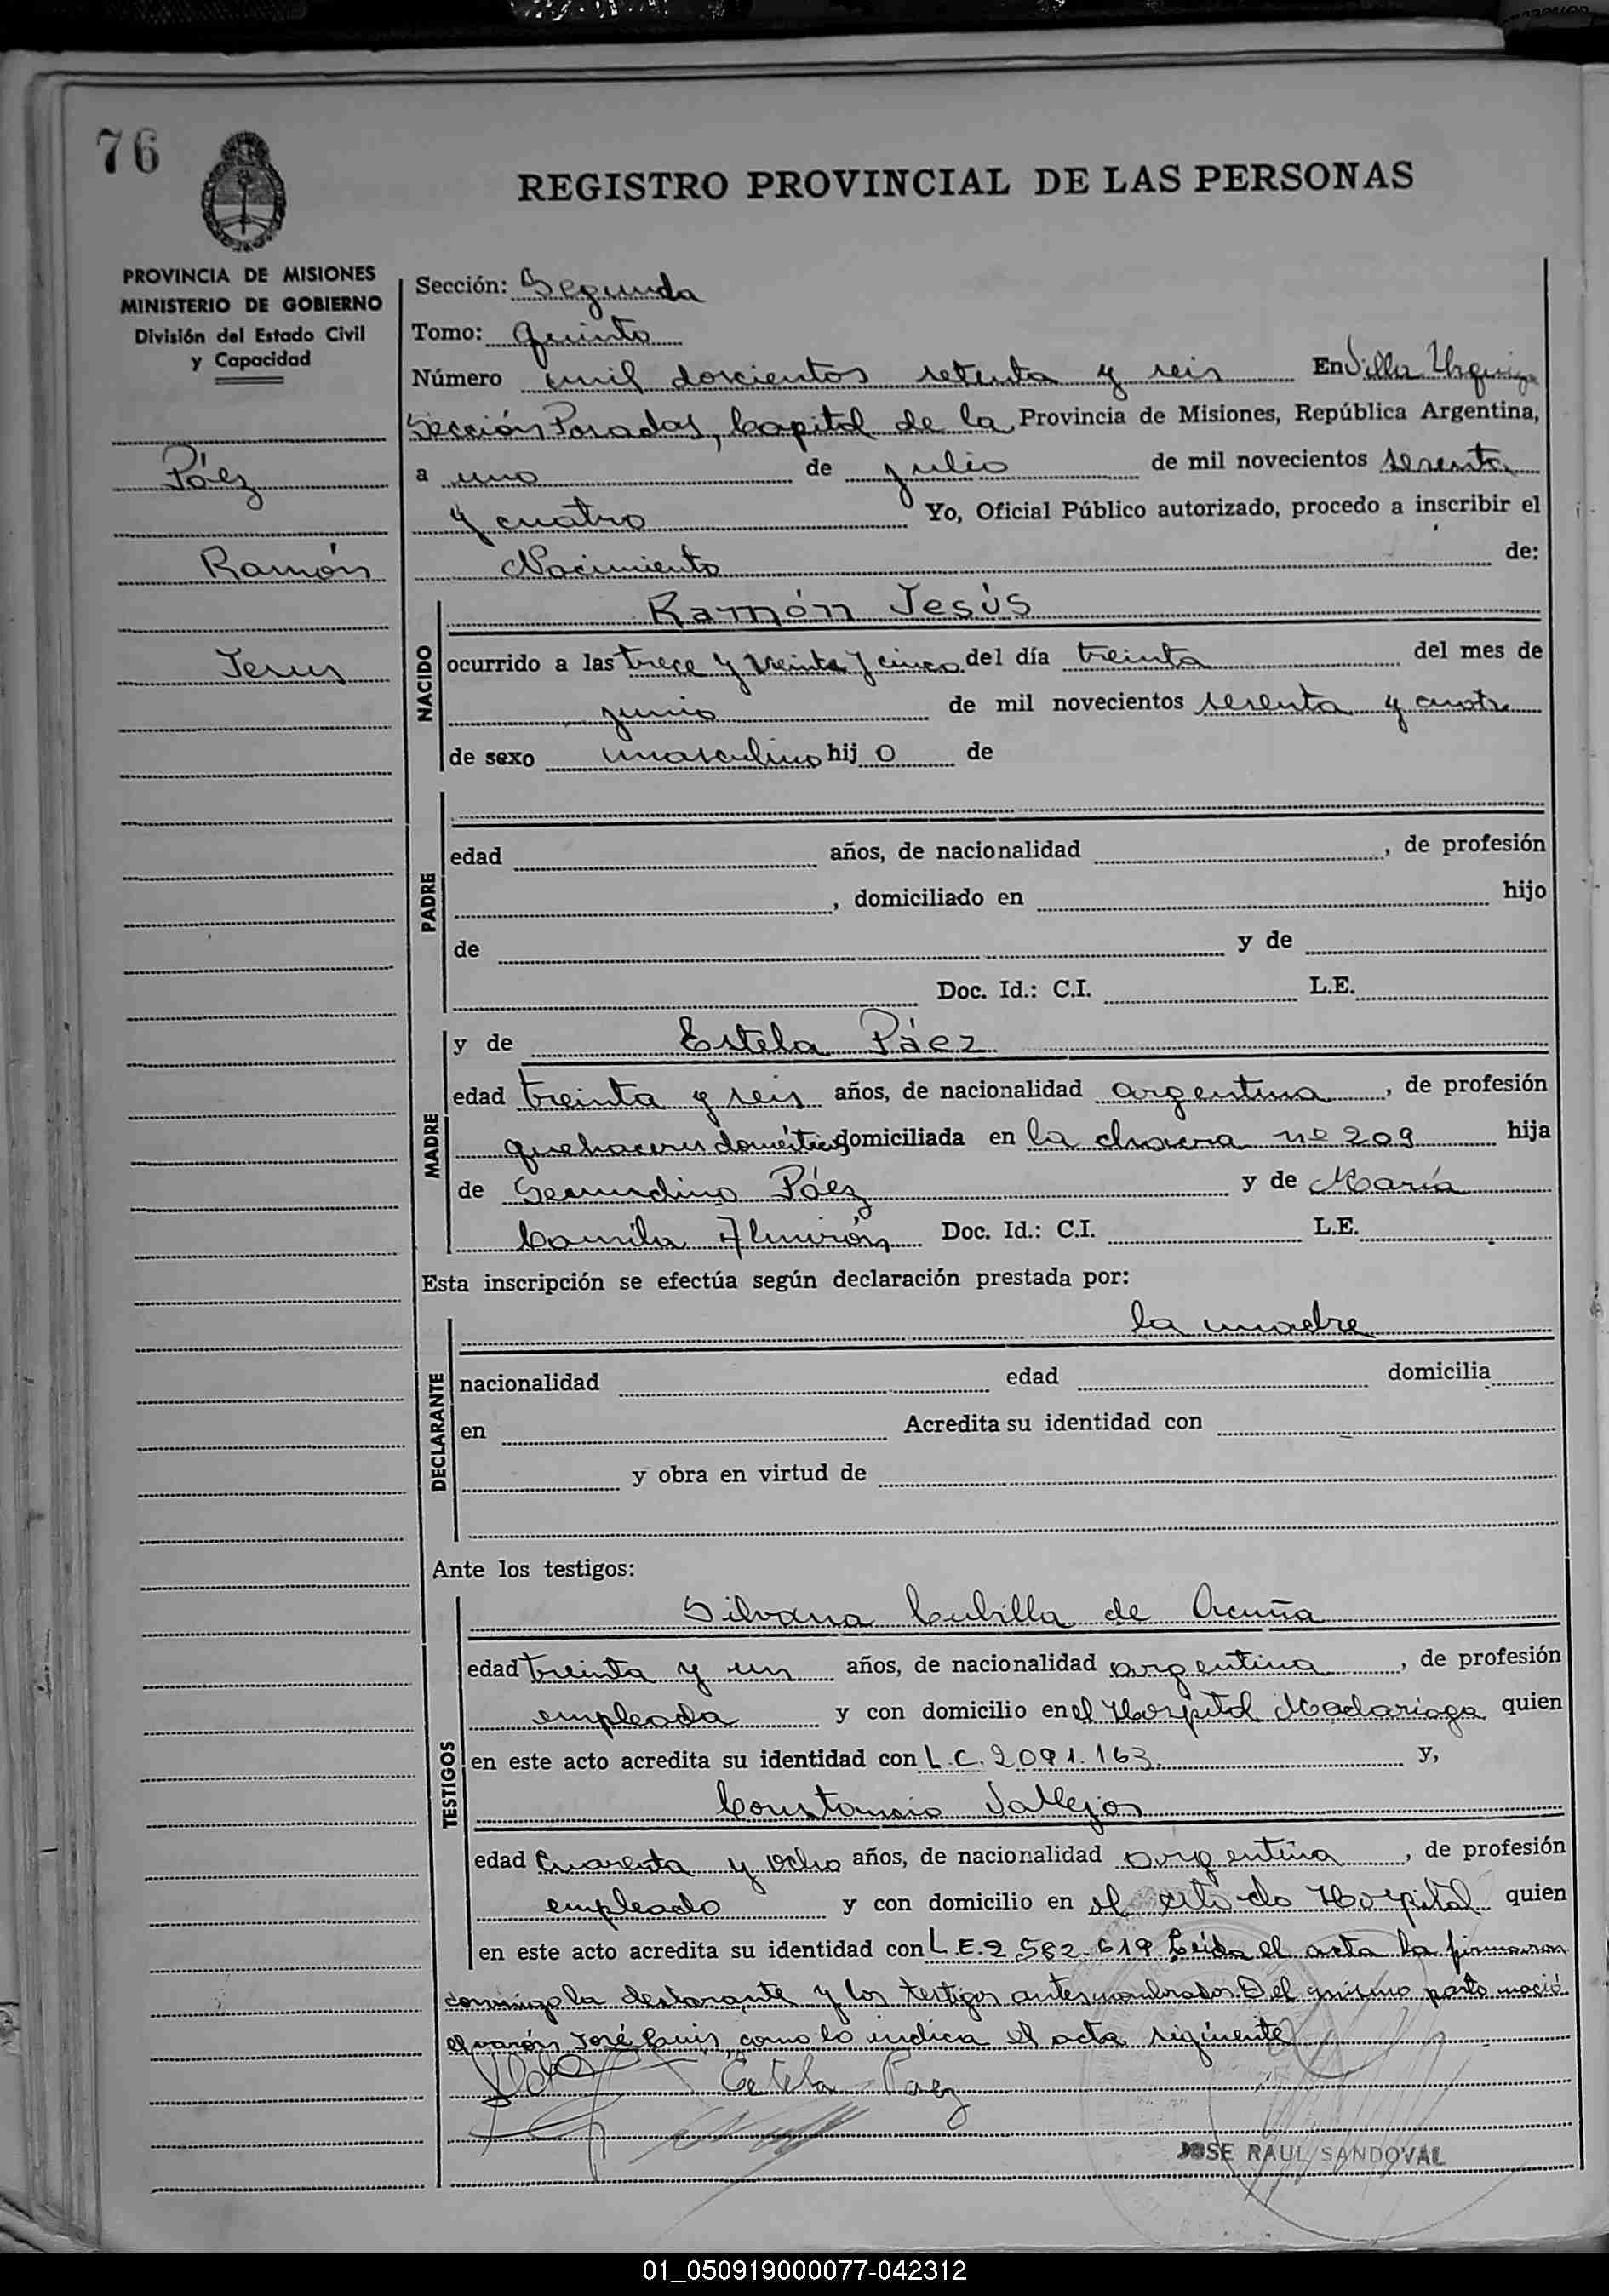 76
REGISTRO PROVINCIAL DE LAS PERSONAS
PROVINCIA DE MISIONES
MINISTERIO DE GOBIERNO
División del Estado Civil
y Capacidad
Páez
Ramón
Jesus
Sección: Segunda
Tomo: Quinto
Número mil doscientos setenta y seis En Villa Urquiza
Sección Posadas, Capital de la Provincia de Misiones, República Argentina,
a uno de julio de mil novecientos sesenta
y cuatro Yo, Oficial Público autorizado, procedo a inscribir el
Nacimiento de:
NACIDO
Ramón Jesús
ocurrido a las trece y treinta y cinco del día treinta del mes de
junio de mil novecientos sesenta y cuatro
de sexo masculino hijo de
PADRE
edad años, de nacionalidad , de profesión
, domiciliado en hijo
de y de
Doc. Id.: C.I. L.E.
MADRE
y de Estela Páez
edad treinta y seis años, de nacionalidad argentina , de profesión
quehaceres domésticos domiciliada en la chacra nº 209 hija
de Secundino Páez y de María
Camila Almirón Doc. Id.: C.I. L.E.
Esta inscripción se efectúa según declaración prestada por:
DECLARANTE
la madre
nacionalidad edad domicilia
en Acredita su identidad con
y obra en virtud de
Ante los testigos:
TESTIGOS
Silvana Cubilla de Acuña
edad treinta y un años, de nacionalidad argentina , de profesión
empleada y con domicilio en el Hospital Madariaga quien
en este acto acredita su identidad con L.C. 2.091.163. y,
Constancio Vallejos
edad Cuarenta y ocho años, de nacionalidad argentina , de profesión
empleado y con domicilio en el citado Hospital quien
en este acto acredita su identidad con L.E. 2.582.619 Leída el acta la firmaron
conmigo la declarante y los testigos antesnombrados. Del mismo parto nació
el varón José Luis, como lo indica el acta siguiente
Estela Paez
JOSE RAUL SANDOVAL
01_050919000077-042312